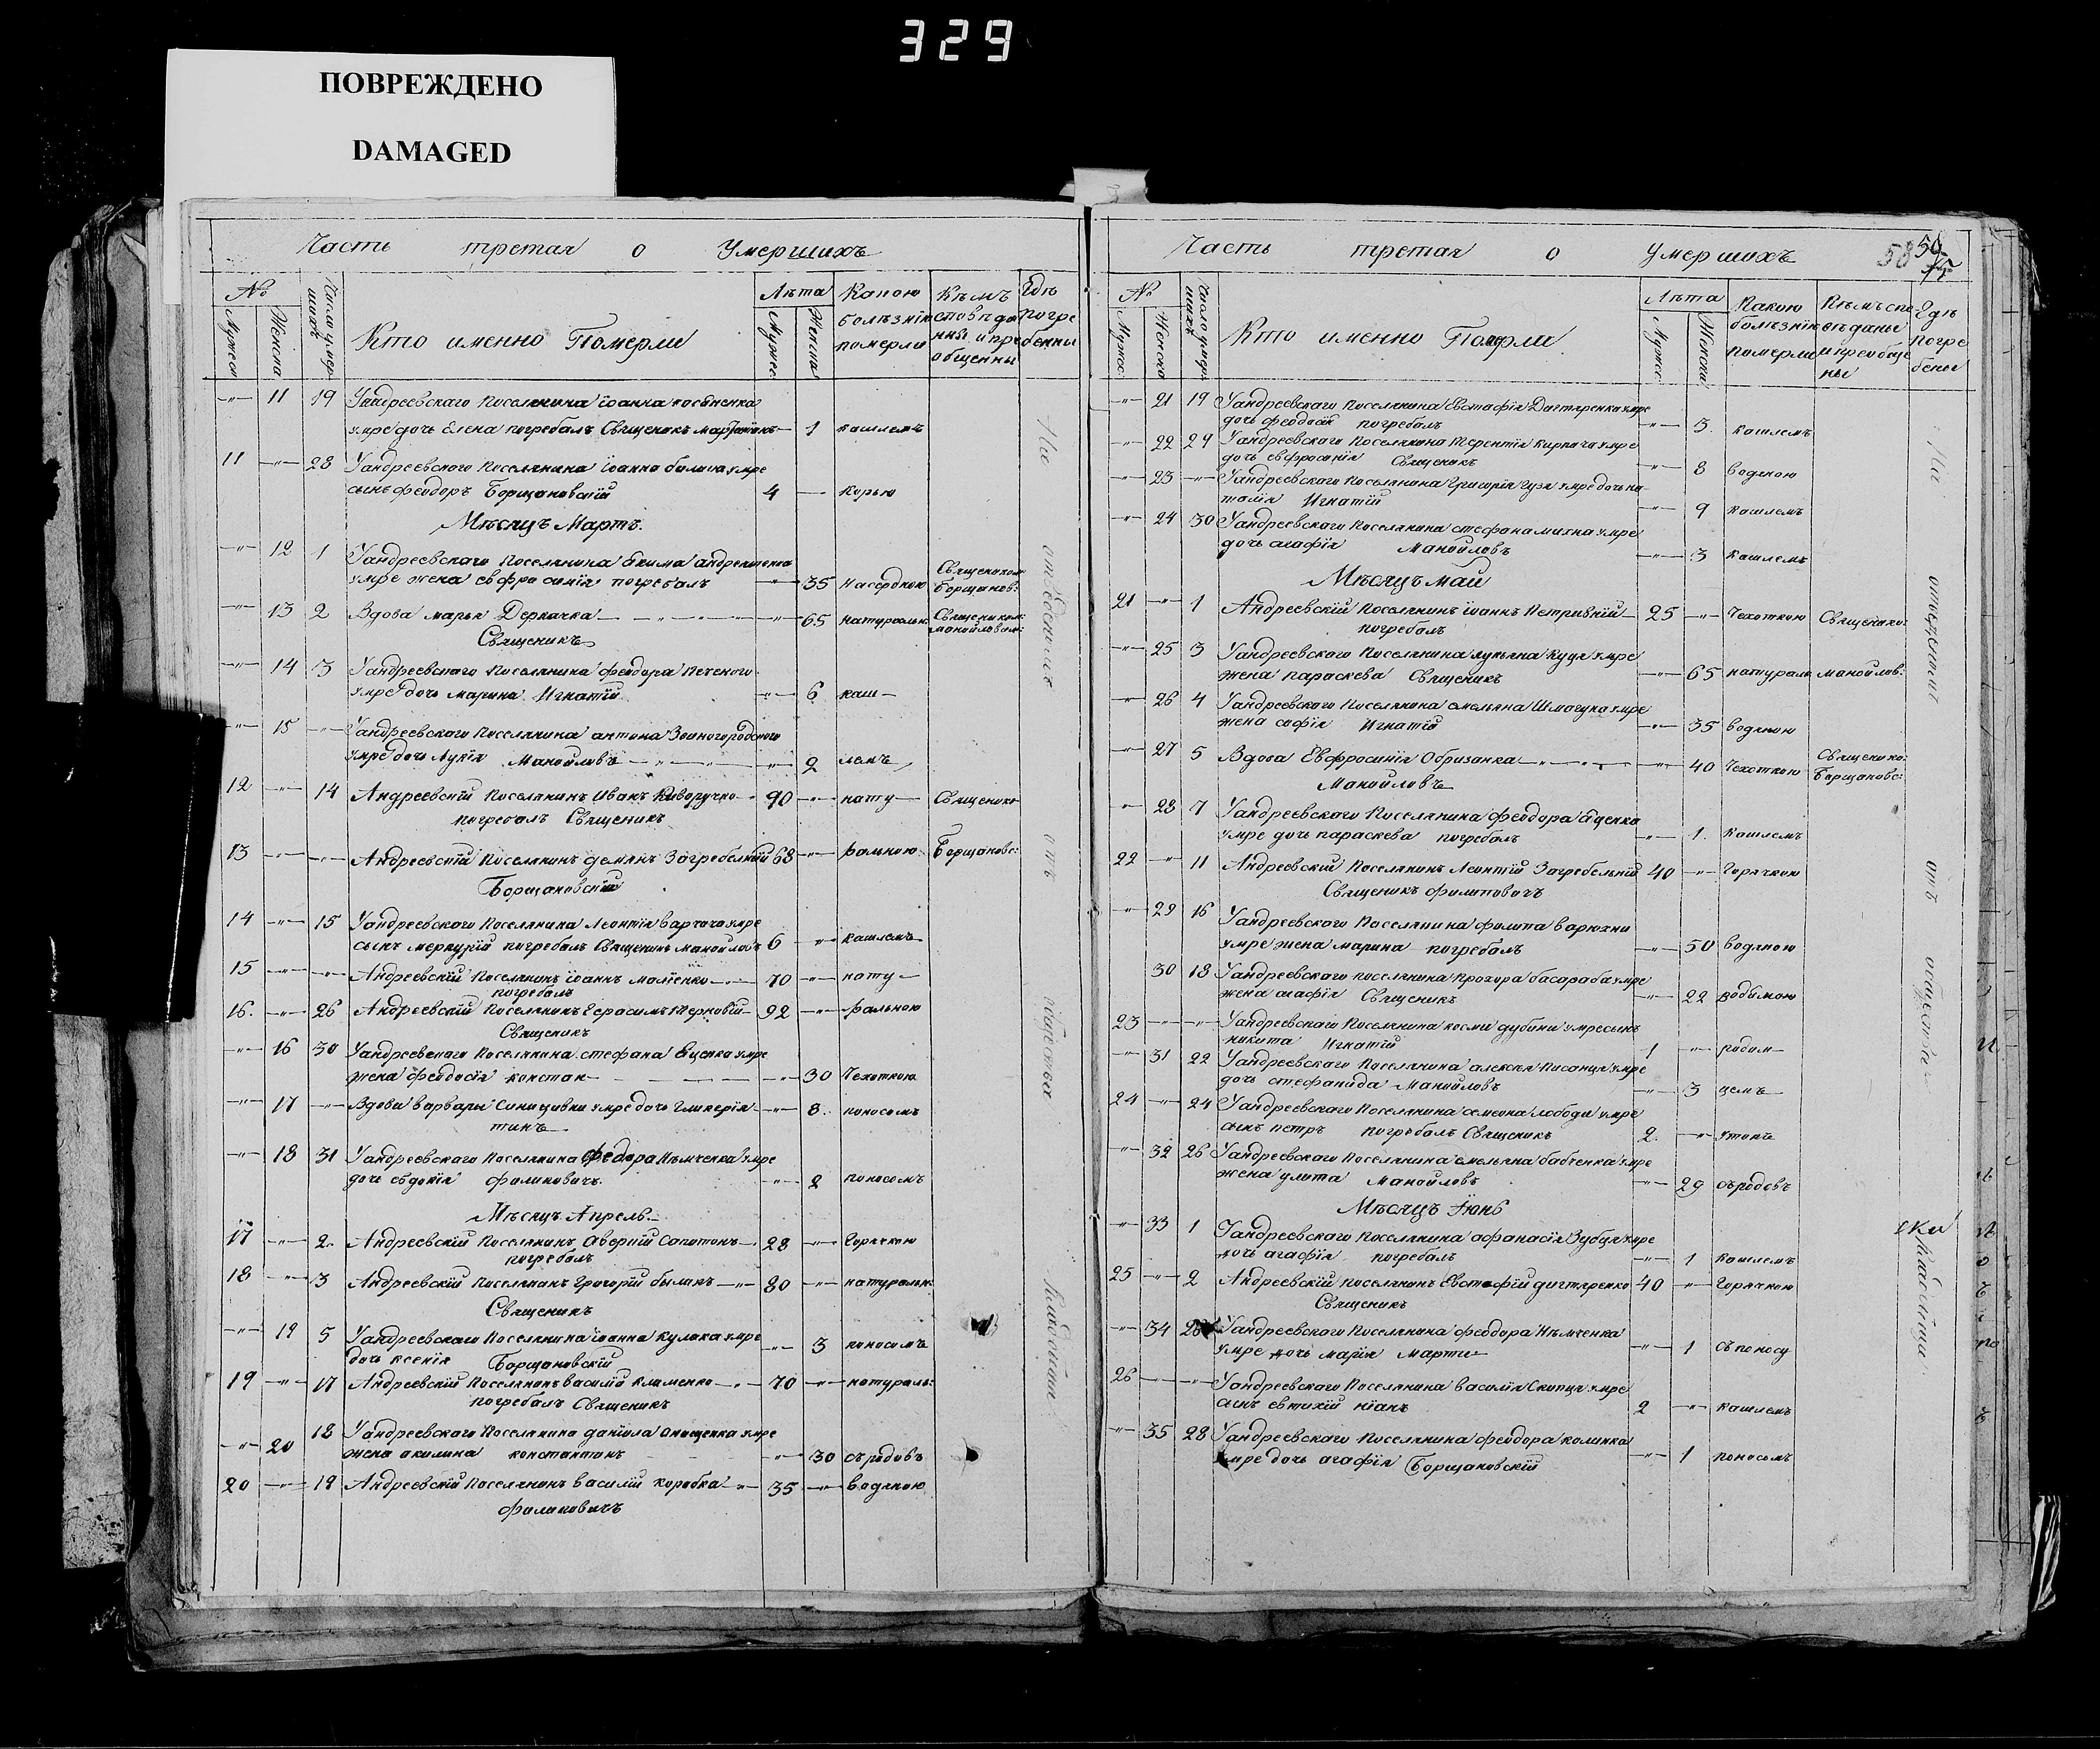 329
ПОВРЕЖДЕНО
DAMAGED
Часть третая о Умершихъ
№ Число умершихъ Кто именно Померли Лѣта Какою болѣзнію померли Кѣмъ исповѣданы и пріобщенны Гдѣ погребенны
Мужеска Женска Мужес: Женска
—"— 11 19 Уандреевскаго Поселянина іоанна
умре дочь Елена погребалъ Священикъ —"— 1 кашлемъ
11 —"— 28 Уандреевского Поселянина іоанна умре
сынъ феодоръ Борщановскій 4 — Корью
Мѣсяцъ Мартъ.
—"— 12 1 Уандреевскаго Поселянина Якима
умре жена евфросинія погребалъ —"— 35 Священиком: Борщанов:
—"— 13 2 Вдова марья Деркачка —"— 65 натуральн: Священиком: маноиловом:
Священикъ
—"— 14 3 Уандреевскаго Поселянина феодора
умре дочь марина Игнатій —"— 6 каш—
—"— 15 —"— Уандреевскаго Поселянина антона Звиногородского
умре дочь Лукія Маноиловъ —"— 2 лемъ
12 —"— 14 Андреевскій Поселянинъ Иванъ Криворучко 90 —"— нату— Священико
погребалъ Священикъ
13 —"— —"— Андреевскій Поселянинъ демянъ Загребелній 68 —"— ральною Борщановс:
Борщановскій
14 —"— 15 Уандреевского Поселянина Леонтія умре
сынъ меркурій погребалъ Священикъ Маноиловъ 6 " кашлемъ
15 —"— —"— Андреевскій Поселянинъ іоаннъ 70 —"— нату—
погребалъ
16. —"— 26 Андреевскій Поселянинъ Герасимъ Терновій 92 —"— ральною
Священикъ
—"— 16 30 Уандреевскаго Поселянина стефана Яценка умре
жена феодосія констан— —"— 30 Чехоткою
—"— 17 —"— Вдовы варвары Синицивни умре дочь Гликерія —"— 8. поносомъ
тинъ
—"— 18 31 Уандреевскаго Поселянина Федора Нѣмченка умре
дочь евдокія филиповичъ. —"— 2 поносомъ
Мѣсяцъ Апрель
17 —"— 2. Андреевскій Поселянинъ Аверкій 28 —"— Горячкою
погребалъ
18 —"— 3 Андреевскій Поселянинъ Григорій быликъ —"— 80 —"— натуральн:
Священикъ
—"— 19 5 Уандреевскаго Поселянина іоанна кулака умре
дочь ксенія Борщановскій —"— 3 поносомъ
19 —"— 17 Андреевскій Поселянинъ василій клименко 70 —"— натураль:
погребалъ Священикъ
—"— 20 18 Уандреевскаго Поселянина даніила Онищенка умре
жена акилина константинъ —"— 30 съ родовъ
20 —"— 19 Андреевскій Поселянинъ василій коробка —"— 35 —"— водяною
филиповичъ
На отведенныхъ отъ обществъ кладбищахъ
Часть третая о умершихъ 58
№ Число умершихъ Кто именно Померли Лѣта Какою болѣзнію померли Кѣмъ исповѣданы и пріобщены Гдѣ погребены
Мужес: Женско Мужес: Женски
—"— 21 19 Уандреевскаго поселянина Евстафія Дигтяренка умре
дочь феодосія погребалъ —"— 3. кашлемъ
—"— 22 29 Уандреевскаго Поселянина Терентія умре
дочь евфросинія Священикъ —"— 8 водяною
—"— 23 —"— Уандреевскаго Поселянина Григорія Гузя умре дочь на
талія Игнатій —"— 9 кашлемъ
—"— 24 30 Уандреевскаго Поселянина стефана михна умре
дочь агафія Маноиловъ —"— 3 кашлемъ
Мѣсяцъ май
21 —"— 1 Андреевскій Поселянинъ іоаннъ Петривній 25 —"— Чехоткою Священико:
погребалъ
—"— 25 3 Уандреевскаго Поселянина лукьяна куця умре
жена параскева Священикъ —"— 65 натурал маноилов:
—"— 26 4 Уандреевского Поселянина емельяна умре
жена софія Игнатій —"— 35 водяною
—"— 27 5 Вдова Евфросинія Обризанка —"— 40 Чехоткою Священико: Борщановс:
Маноиловъ
" 28 7 Уандреевского Поселянина феодора Яценка
умре дочь параскева погребалъ —"— 1. кашлемъ
22 —"— 11 Андреевскій Поселянинъ Леонтій Загребельній 40 —"— Горячкою
Священикъ филиповичъ
—"— 29 16 Уандреевского Поселянина филипа варюхни
умре жена марина погребалъ —"— 50 водяною
30 18 Уандреевскаго поселянина прохора басараба умре
жена агафія Священикъ —"— 22 родимою
23 —"— —"— Уандреевскаго Поселянина косми дубини умре сынъ
никита Игнатій 1 —"— родим—
—"— 31 22 Уандреевскаго Поселянина алексѣя умре
дочь стефанида Маноиловъ —"— 3 цемъ
24 —"— 24 Уандреевскаго Поселянина семена лободи умре
сынъ петръ погребалъ Священикъ 2. —"— утопъ
—"— 32 26 Уандреевскаго Поселянина емельяна бабченка умре
жена улита Маноиловъ —"— 29 съ родовъ
Мѣсяцъ Іюнь
—"— 33 1 Уандреевскаго Поселянина афанасія Зубця умре
дочь агафія погребалъ —"— 1 кашлемъ
25 —"— 2 Андреевскій поселянинъ Евстафій дигтяренко 40 —"— Горячкою
Священикъ
—"— 34 26 Уандреевскаго Поселянина феодора Нѣмченка
умре дочь марія Марти— —"— 1 съ поносу
26 —"— —"— Уандреевскаго Поселянина василія Скопця умре
сынъ евтихій ніанъ 2 —"— кашлемъ
—"— 35 28 Уандреевскаго Поселянина феодора калинка
умре дочь агафія Борщановскій —"— 1 поносомъ
На отъ кладбищи